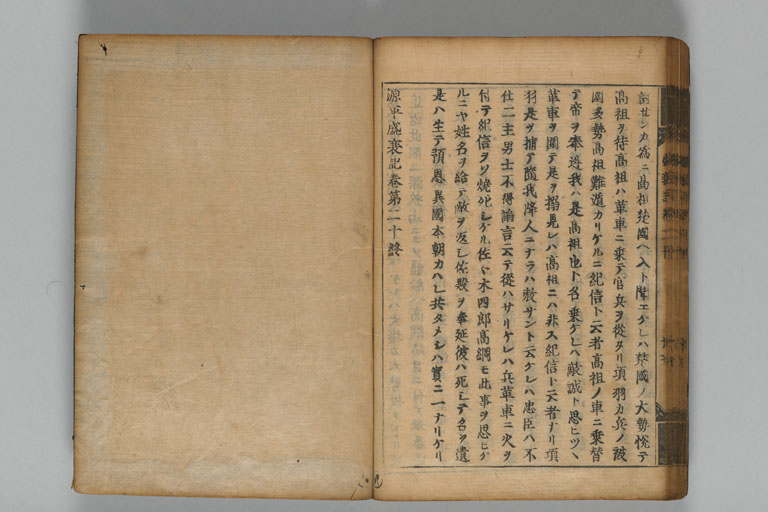 謝センカ為ニ高祖楚國ヘ入ト聞エケレハ楚國ノ大勢悦テ
高祖ヲ待高祖ハ革車ニ乗テ官兵ヲ從タリ項羽カ兵ノ彼
圍多勢高祖難遁カリケルニ紀信ト云者高祖ノ車ニ乗替
テ帝ヲ奉返我ハ是高祖也ト名乗ケレハ敵誠ト思ヒツヽ
革車ヲ圍テ是ヲ搦見レハ高祖ニハ非ス紀信ト云者ナリ項
羽是ヲ捕テ隨我降人ニナラハ赦サント云ケレハ忠臣ハ不
仕二主男士不得諂言云テ從ハサリケレハ兵革車ニ火ヲ
付テ紀信ヲソ燒死シケル佐々木四郎高綱モ此事ヲ思ヒケ
ルニヤ姓名ヲ給テ敵ヲ返シ佐殿ヲ奉延彼ハ死シテ名ヲ遺
是ハ生テ預恩異國本朝カハレ共タメシハ實ニ一ナリケリ
源平盛衰記卷第二十終